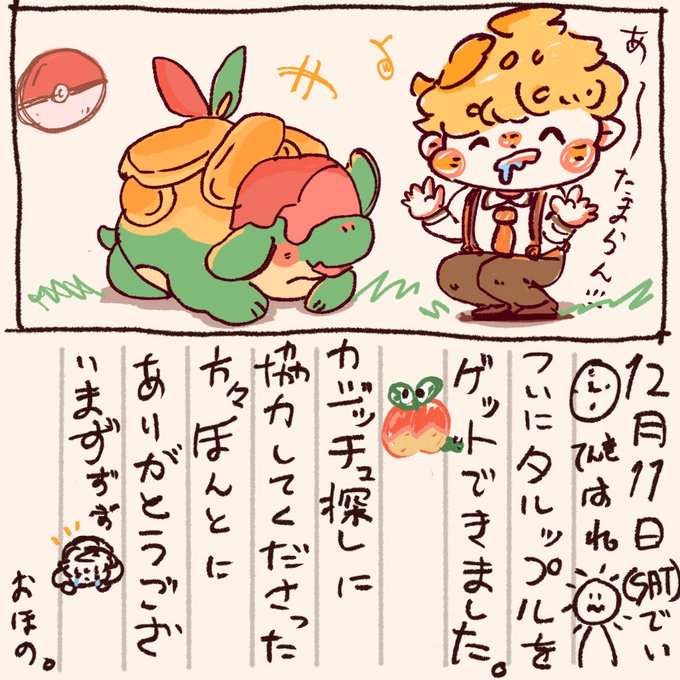 あ〜〜たまらん…!!
12月11日(SAT)でい
てんきはれ。
ついにタルップルを
ゲットできました。
カジッチュ探しに
協力してくださった
方々ほんとに
ありがとうござ
いまずずず
おほの。